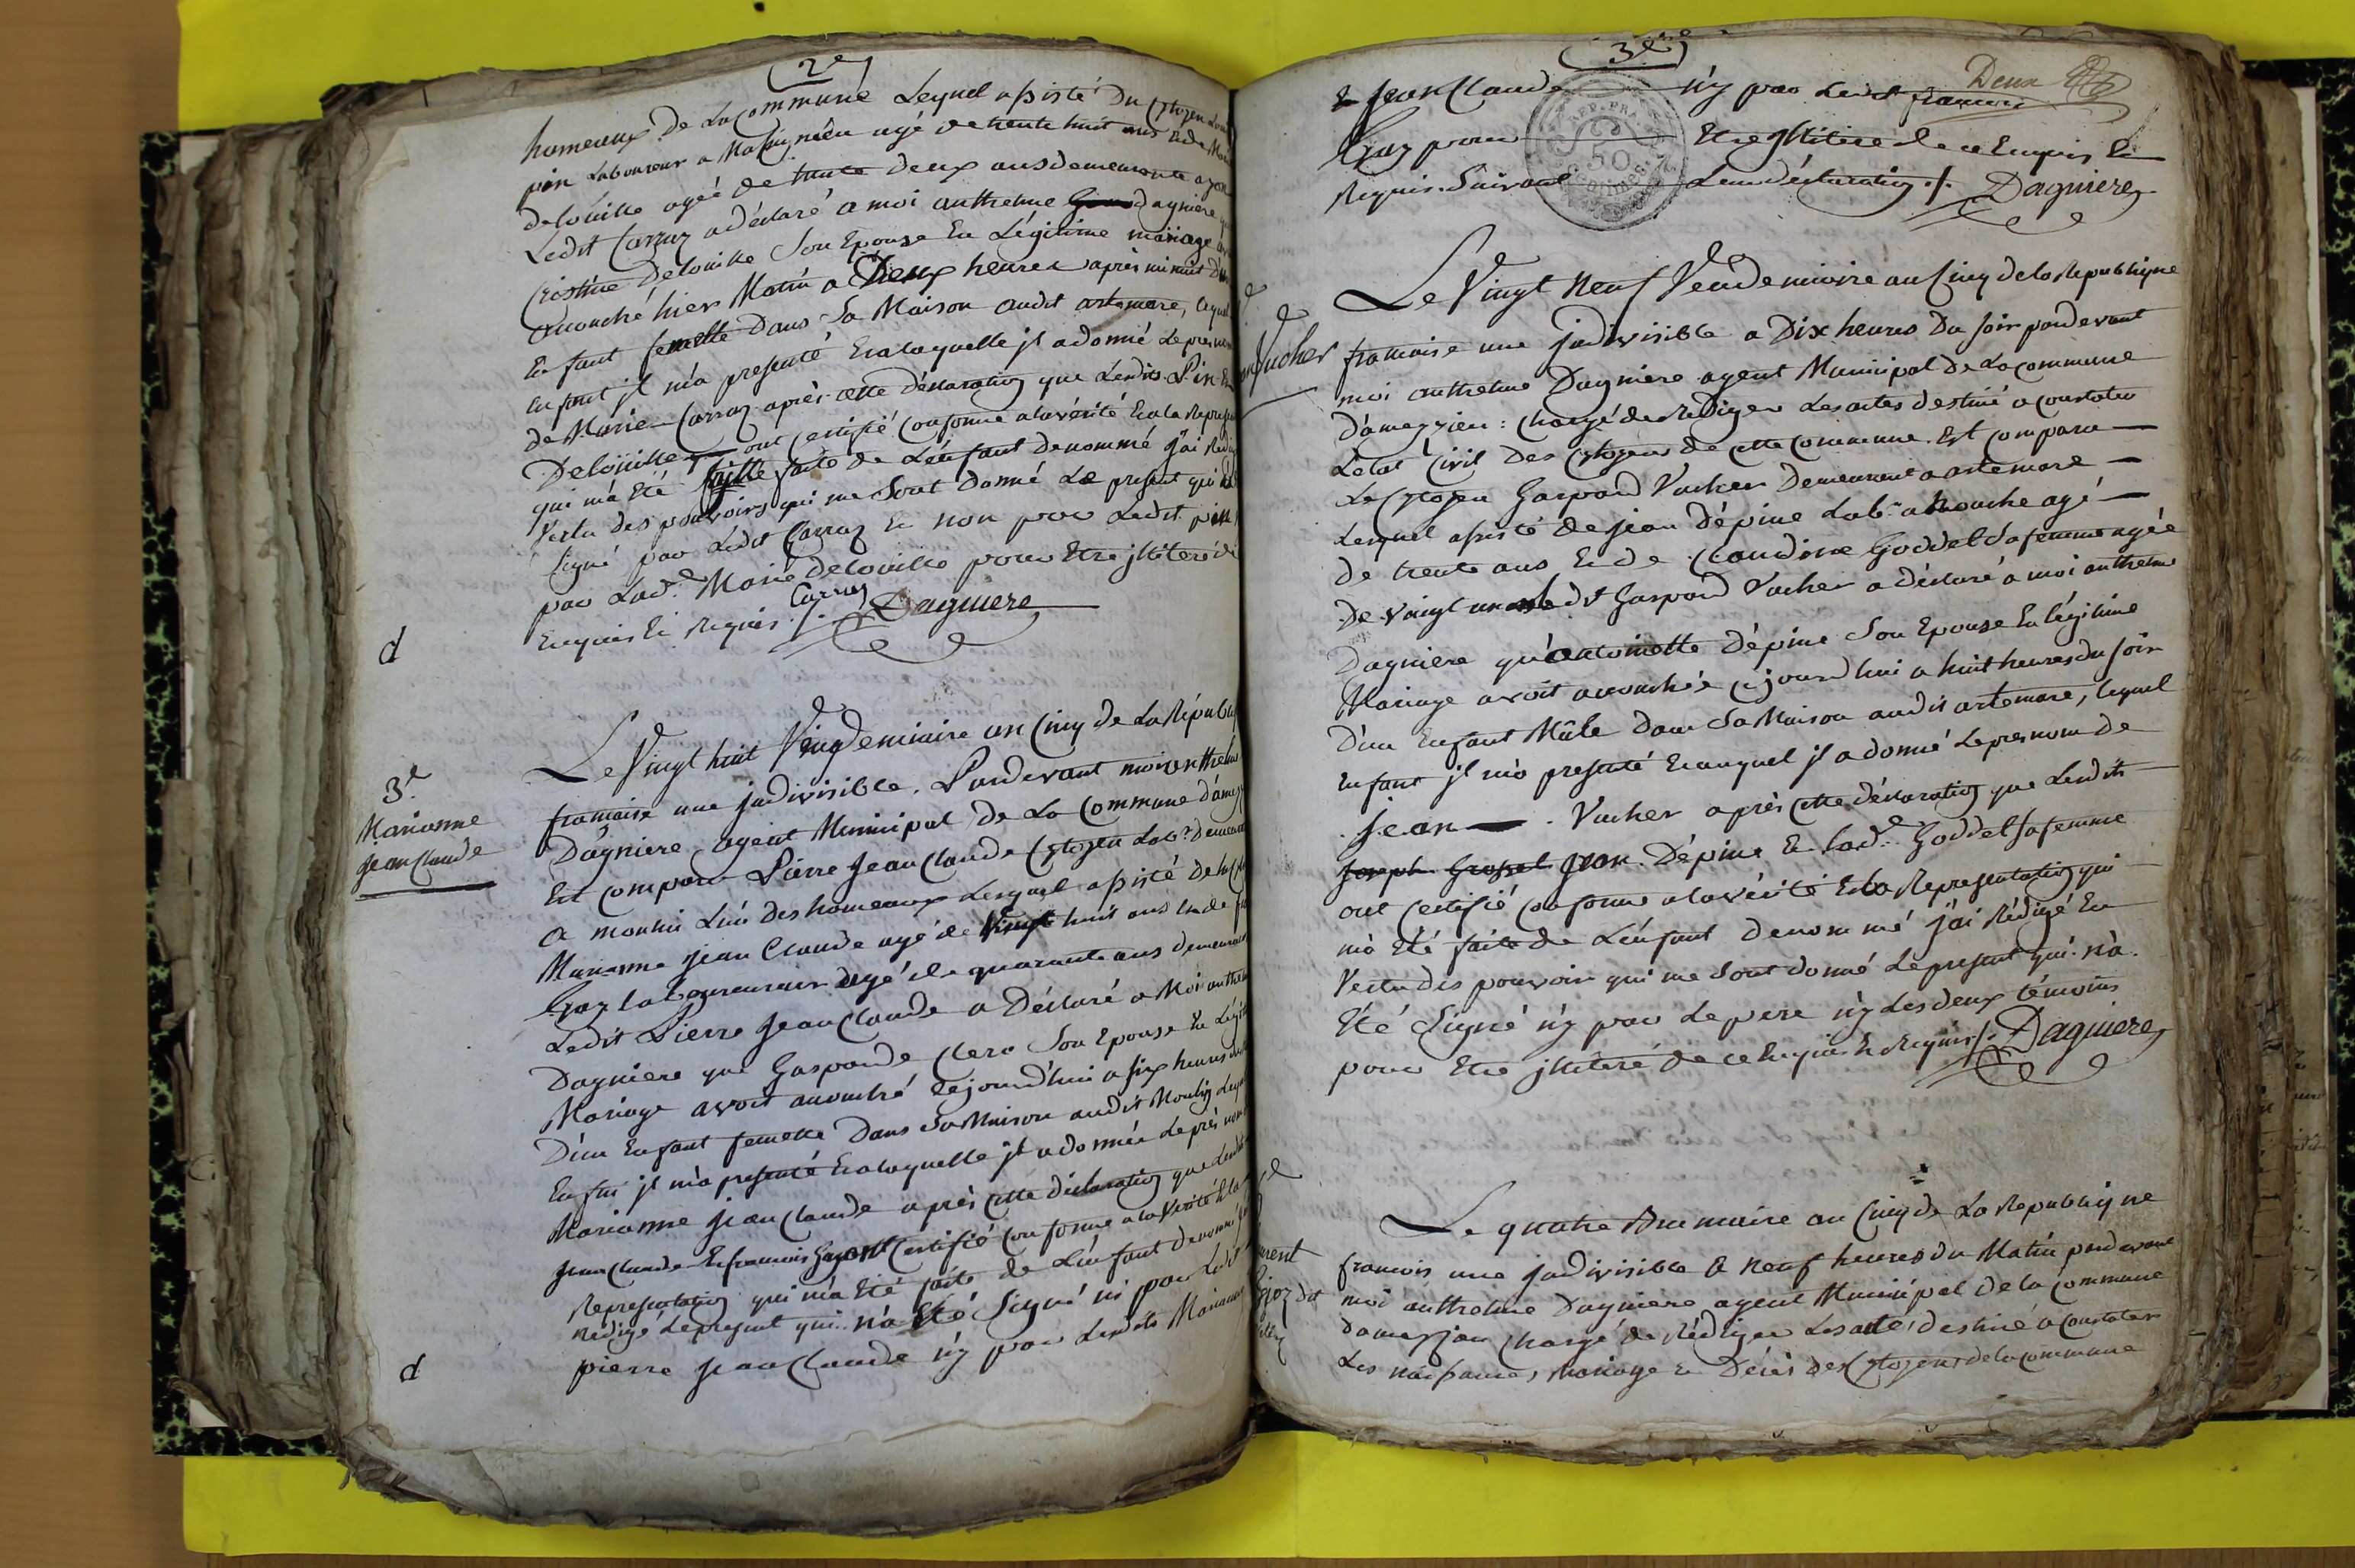 (2e)
homeaux De La Commune Lequel assisté Du Citoyen
pin Laboureur a agé de trente huit ans Et de
delouille agée de trente deux ans demeurante a
Ledit Carraz a déclaré a moi anthelme Dagniere
Cristine Delouille Son Epouse En Légitime mariage
accouché hier Matin a Deux heures après minuit
Enfant femelle Dans Sa Maison audit artemare, lequel
Enfant jl m'a presenté Et a laquelle jl a donné Le
de Marie Carraz après cette déclaration que Lesdits Pin Et
Delouille ont Certifié Conforme a la vérité Et a la
qui m'a Eté faitte de L'enfant denommé j'ai
Vertu des pouvoirs qui me Sont Donné Le present qui
Signé par Ledit Carraz Et non par Ledit pin
par Lad.e Marie Delouille pour Etre jlliteré de
Enquis Et Requis ./. Carraz Dagniere
d
Le Vingt huit Vendemiaire an Cinq de La Répub
3e
Marianne
Jean Claude
francaise une jndivisible. Pardevant moi anthelme
Dagniere agent Municipal de La Commune
Est comparu Pierre Jean Claude Citoyen Lab.r
a Lequel assisté de
Marianne Jean Claude agé de Vingt huit ans Et de
Gay agé de quarante ans
Ledit Pierre Jean Claude a Déclaré a Moi
Dagniere que Gasparde Clerc Son Epouse En
Mariage avoit accouché cejourd'hui a six heures
D'un Enfant femelle Dans Sa Maison audit
Enfant jl m'a presenté Et a laquelle jl a donnée Le prés nom
Marianne Jean Claude après Cette déclaration que
Jean Claude Et francois Gay ont Certifié Conforme a la Verité Et la
Representation qui m'a Eté faite de L'enfant denommé
Rédigé Le present qui n'a Eté Signé ni par Ledit
pierre Jean Claude n'y par Lesdits Marianne
d
(3e)
Deux
& Jean Claude n'y par Ledit francois
Gay pour Etre jlliteré de ce Enquis Et
Requis Suivant Leur déclaration ./. Dagniere
Le Vingt Neuf Vendemiaire an Cinq de la Republique
Vucher
francaise une jndivisible a Dix heures Du soir pardevant
moi anthelme Dagniere agent Municipal de La Commune
d'ameyzieu : Chargé de Rédiger Les actes destiné a constater
L'etat Civil des Citoyens de cette Commune. Est comparu
Le Citoyen Gaspard Vucher Demeurant a artemare
Lequel assisté de jean Dépine Lab.r agé
De trente ans Et de Claudine Goddet sa femme agée
De vaingt un Gaspard Vucher a déclaré a moi anthelme
Dagniere qu'antoinette Dépine Son Epouse En légitime
Mariage avoit accouchée cejourdhui a huit heures du soir
D'un Enfant Mâle dans Sa Maison audit artemare, lequel
Enfant jl m'a presenté Et auquel jl a donné Le presnom de
Jean . Vucher après cette déclaration que Lesdits
Joseph Grosset Jean Dépine Et Lad.e Goddet sa femme
ont Certifié Conforme a la vérité Et La Representation qui
m'a Eté faite de L'enfant denommé j'ai Rédigé En
Vertu des pouvoir qui me Sont donné Le present qui n'a
Été Signé n'y par Le pere n'y Les deux témoins
pour Etre jlliteré de ce Enquis Et Requis ./. Dagniere
Le quatre Brumaire an Cinq de La Republique
francois une jndivisible a Neuf heures du Matin pardevant
moi anthelme Dagniere agent Municipal de la Commune
Chargé de Rédiger Les acte, destiné a Constater
Les naissance, Mariage & Décés des Citoyens de la Commune